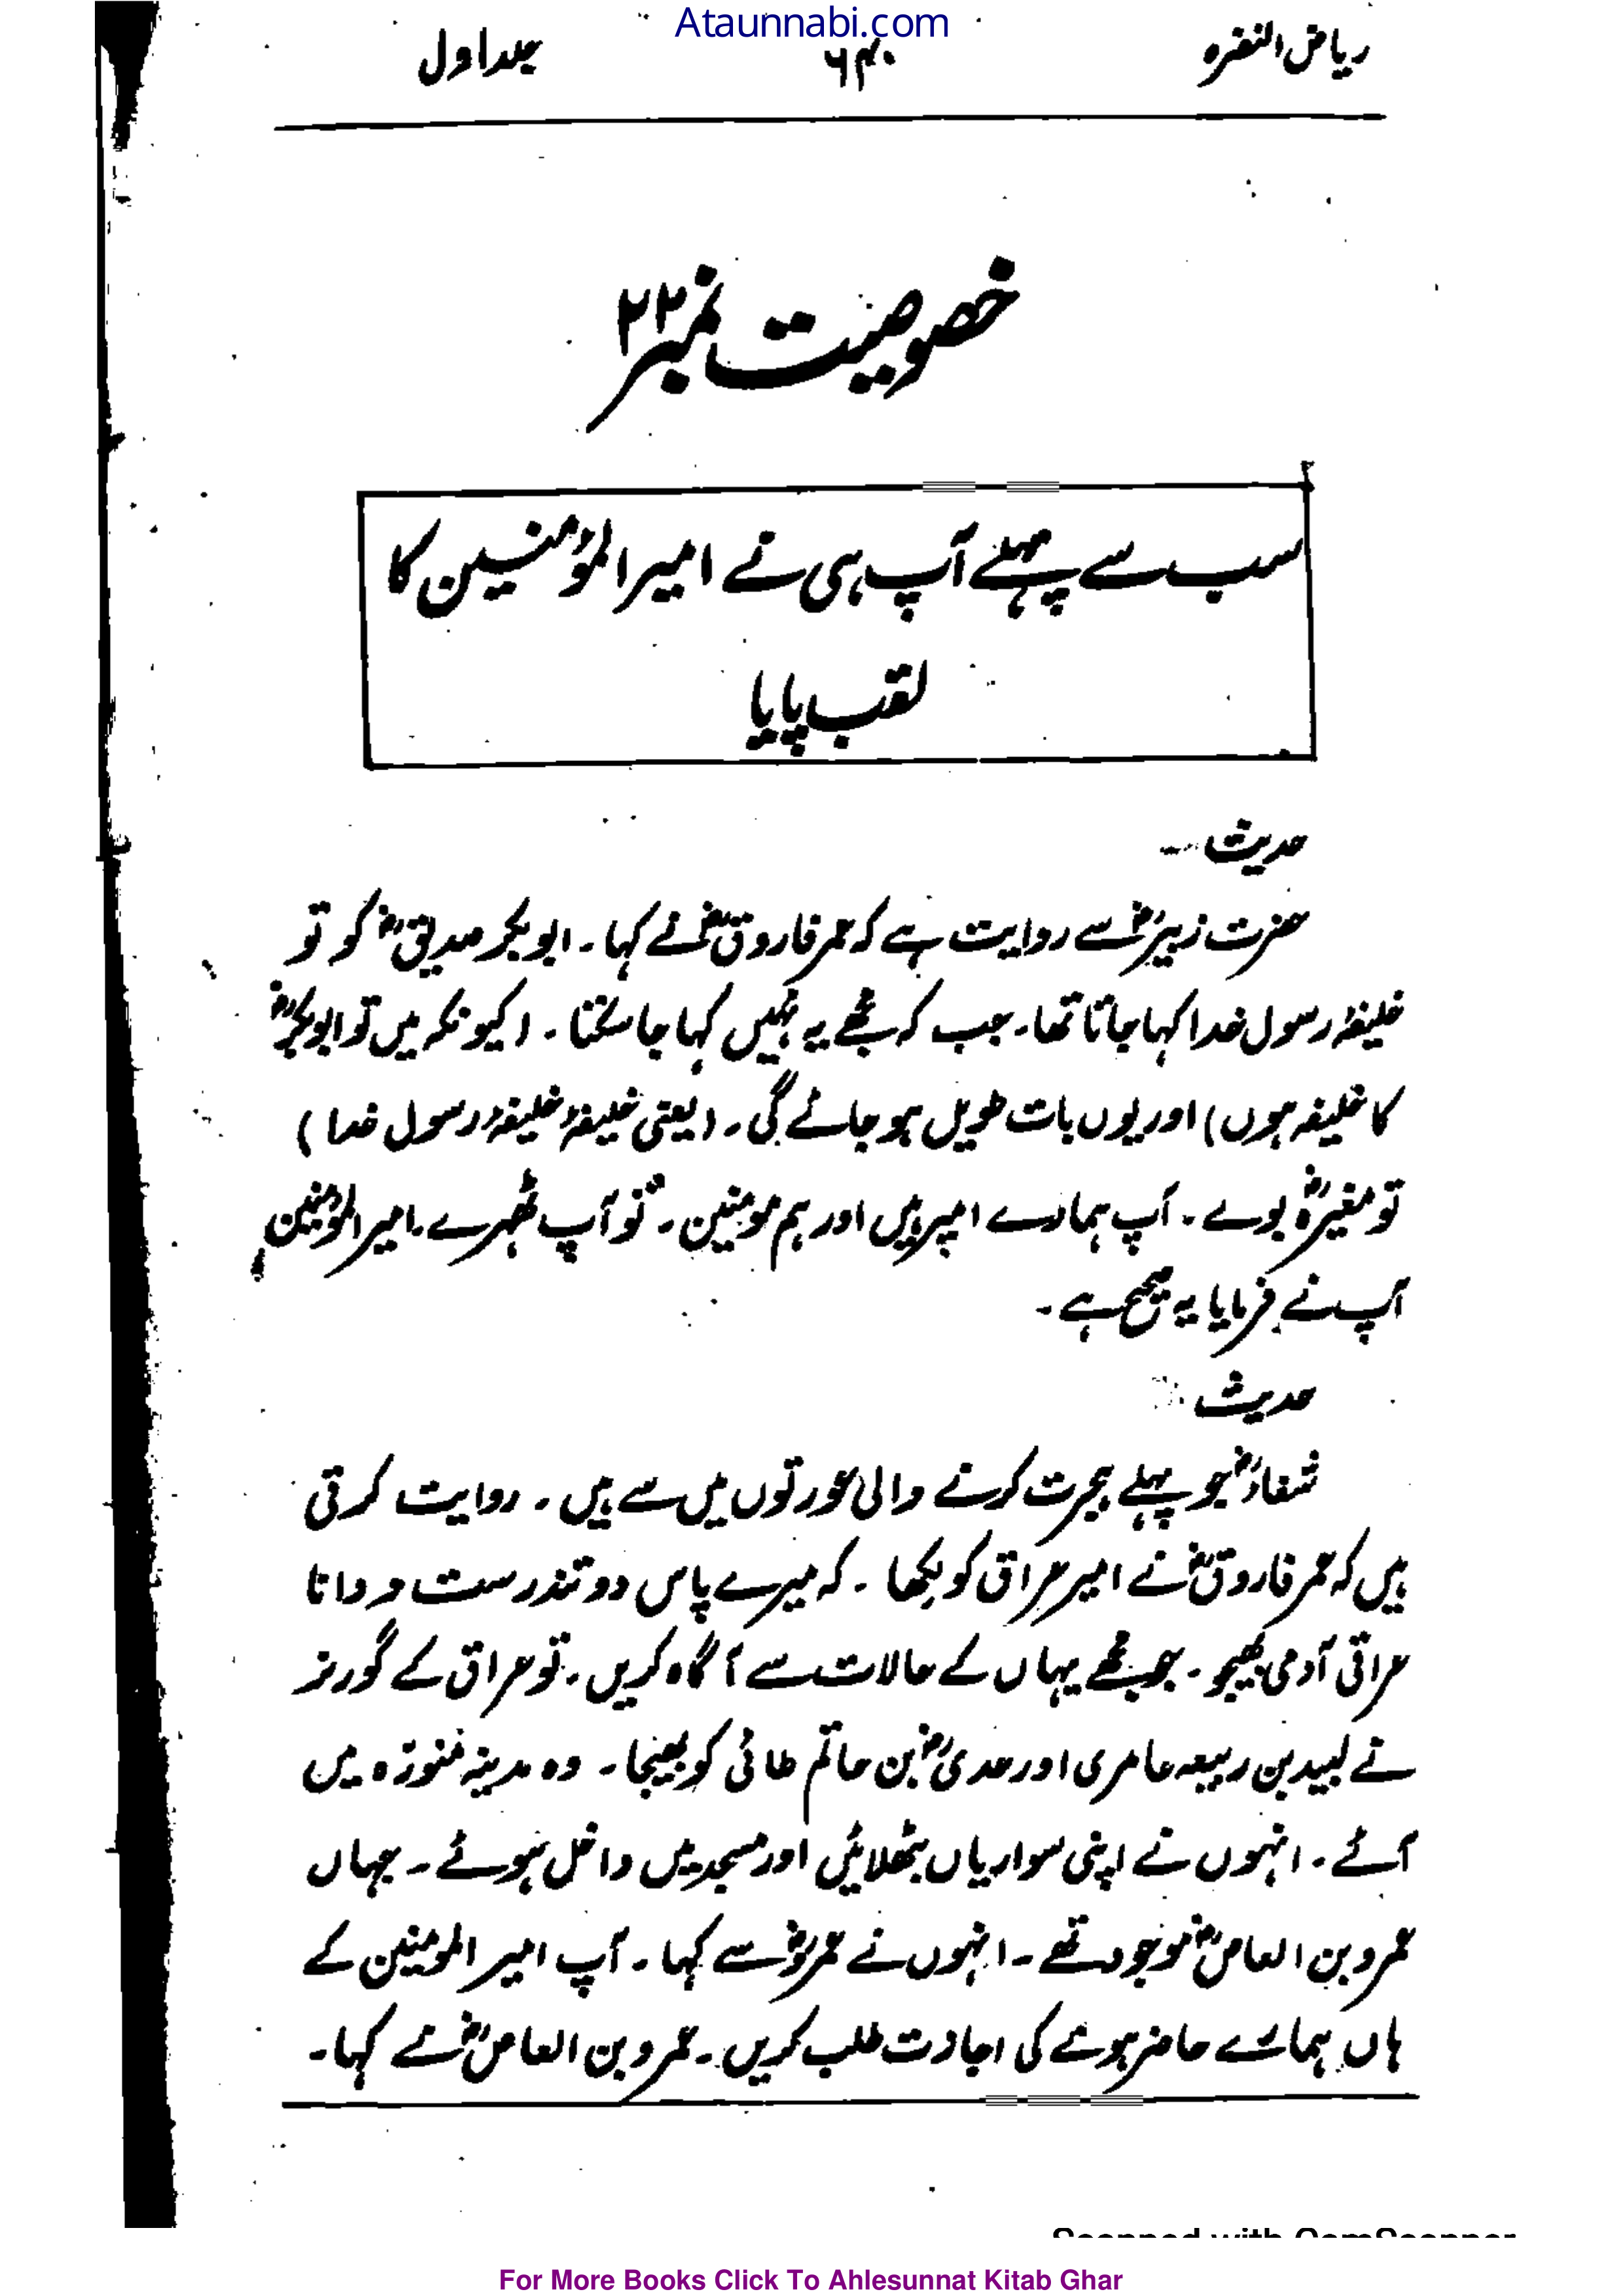 Ataunnabi.com
ریاض النضرہ ۶۴۰ جلد اول
خصوصیت نمبر ۲۲
سب سے پہلے آپ ہی نے امیر المؤمنین کا
لقب پایا
حدیث
حضرت زبیرؓ سے روایت ہے کہ عمر فاروقؓ نے کہا۔ ابوبکر صدیقؓ کو تو
خلیفۂ رسول خدا کہا جاتا تھا۔ جب کہ مجھے یہ نہیں کہا جا سکتا۔ (کیونکہ میں تو ابوبکرؓ
کا خلیفہ ہوں) اور یوں بات طویل ہو جائے گی۔ (یعنی خلیفۂ خلیفۂ رسول خدا)
تو مغیرہؓ بولے۔ آپ ہمارے امیر ہیں اور ہم مومنین۔ تو آپ ٹھہرے۔ امیر المؤمنین
آپ نے فرمایا یہ صحیح ہے۔
حدیث
شفاءؓ جو پہلے ہجرت کرنے والی عورتوں میں سے ہیں۔ روایت کرتی
ہیں کہ عمر فاروقؓ نے امیر عراق کو لکھا۔ کہ میرے پاس دو تندرست و دانا
عراقی آدمی بھیجو۔ جو مجھے یہاں کے حالات سے آگاہ کریں۔ تو عراق کے گورنر
نے لبید بن ربیعہ عامری اور عدیؓ بن حاتم طائی کو بھیجا۔ وہ مدینہ منورّہ میں
آئے۔ انہوں نے اپنی سواریاں بٹھلائیں اور مسجد میں داخل ہوئے۔ جہاں
عمرو بن العاصؓ موجود تھے۔ انہوں نے عمروؓ سے کہا۔ آپ امیر المومنین کے
ہاں ہمارے حاضر ہونے کی اجازت طلب کریں۔ عمرو بن العاصؓ نے کہا۔
Scanned with CamScanner
For More Books Click To Ahlesunnat Kitab Ghar